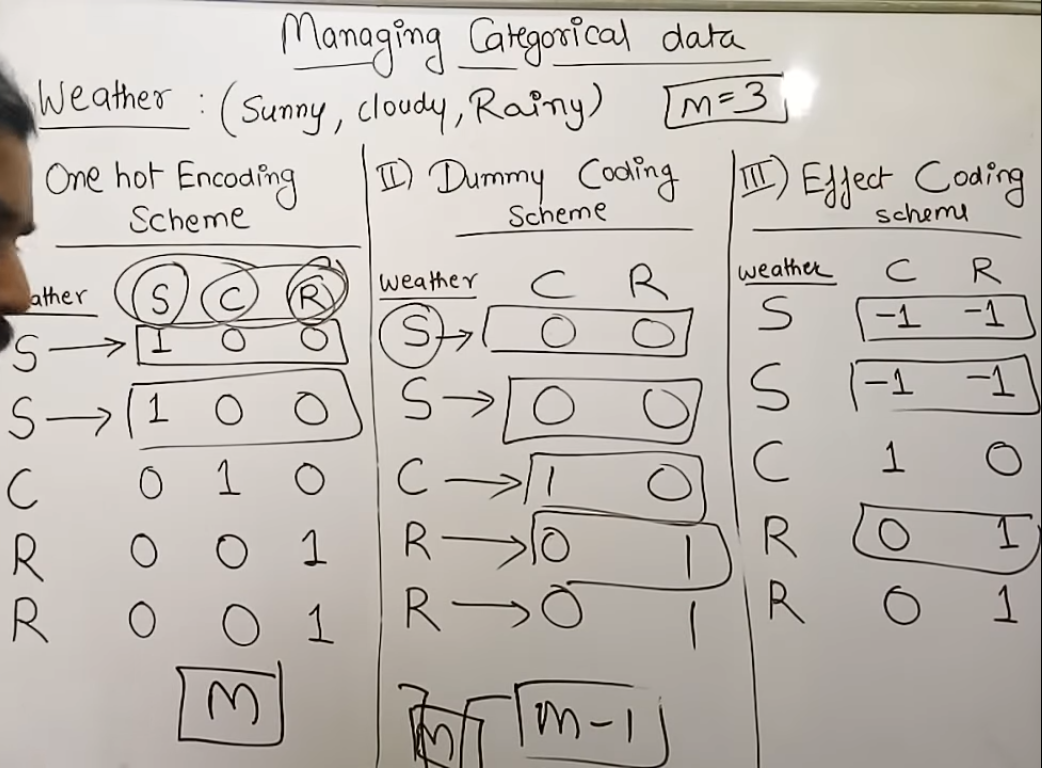 Managing Categorical data
Weather : (Sunny, cloudy, Rainy) m=3
One hot Encoding
Scheme
ather S C R
S → 1 0 0
S → 1 0 0
C 0 1 0
R 0 0 1
R 0 0 1
M
II) Dummy Coding
Scheme
weather C R
S → 0 0
S → 0 0
C → 1 0
R → 0 1
R → 0 1
m m-1
III) Effect Coding
scheme
weather C R
S -1 -1
S -1 -1
C 1 0
R 0 1
R 0 1